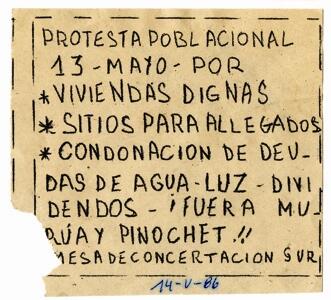 PROTESTA POBLACIONAL
13-MAYO-POR
* VIVIENDAS DIGNAS
* SITIOS PARA ALLEGADOS
* CONDONACION DE DEU-
DAS DE AGUA-LUZ-DIVI
DENDOS-¡FUERA MU-
ÑÓZ Y PINOCHET.!!
MESA DE CONCERTACION SUR
14-V-86